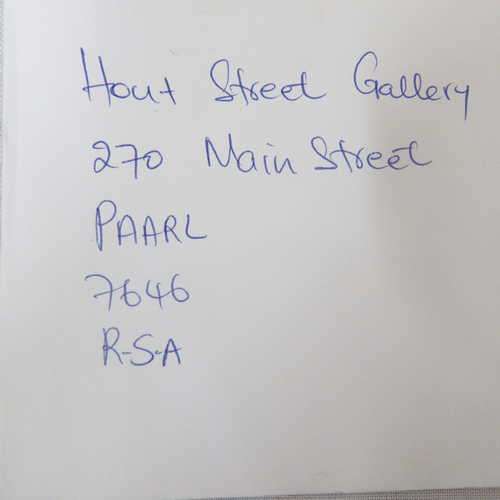 Hout Street Gallery
270 Main Street
PAARL
7646
R-S-A